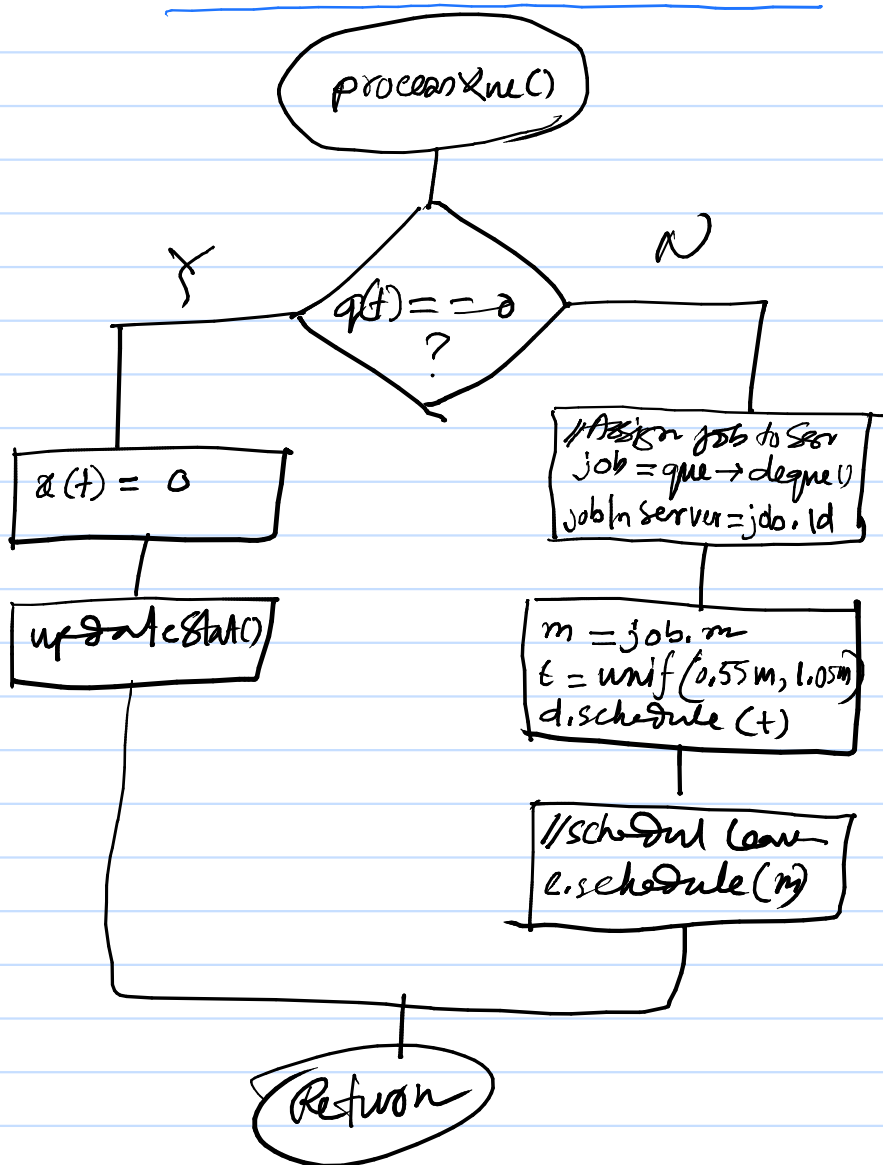 processQue()
q(t) == 0
?
Y
N
x(t) = 0
updateStat()
//Assign job to Ser
job = que → deque()
jobInServer = job.Id
m = job.m
t = unif(0.55m, 1.05m)
d.schedule(t)
//schedul leave
l.schedule(m)
Return